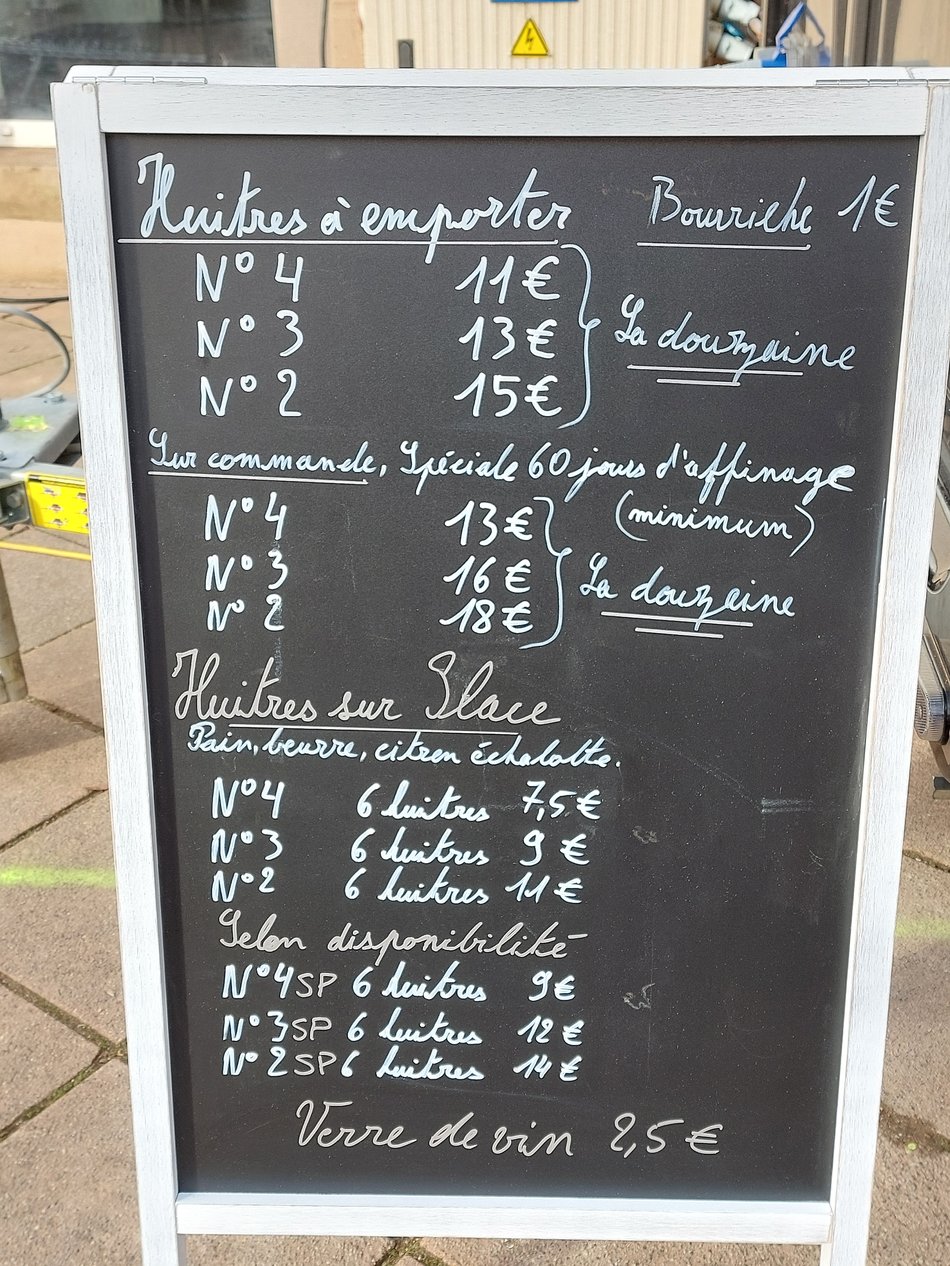 Huitres à emporter Bourriche 1€
N° 4 11€
N° 3 13€ La douzaine
N° 2 15€
Sur commande, Spéciale 60 jours d'affinage
(minimum)
N° 4 13€
N° 3 16€ La douzaine
N° 2 18€
Huitres sur Place
Pain, beurre, citron échalotte.
N°4 6 huitres 7,5€
N°3 6 huitres 9€
N°2 6 huitres 11€
Selon disponibilité
N°4 SP 6 huitres 9€
N°3 SP 6 huitres 12€
N°2 SP 6 huitres 14€
Verre de vin 2,5€